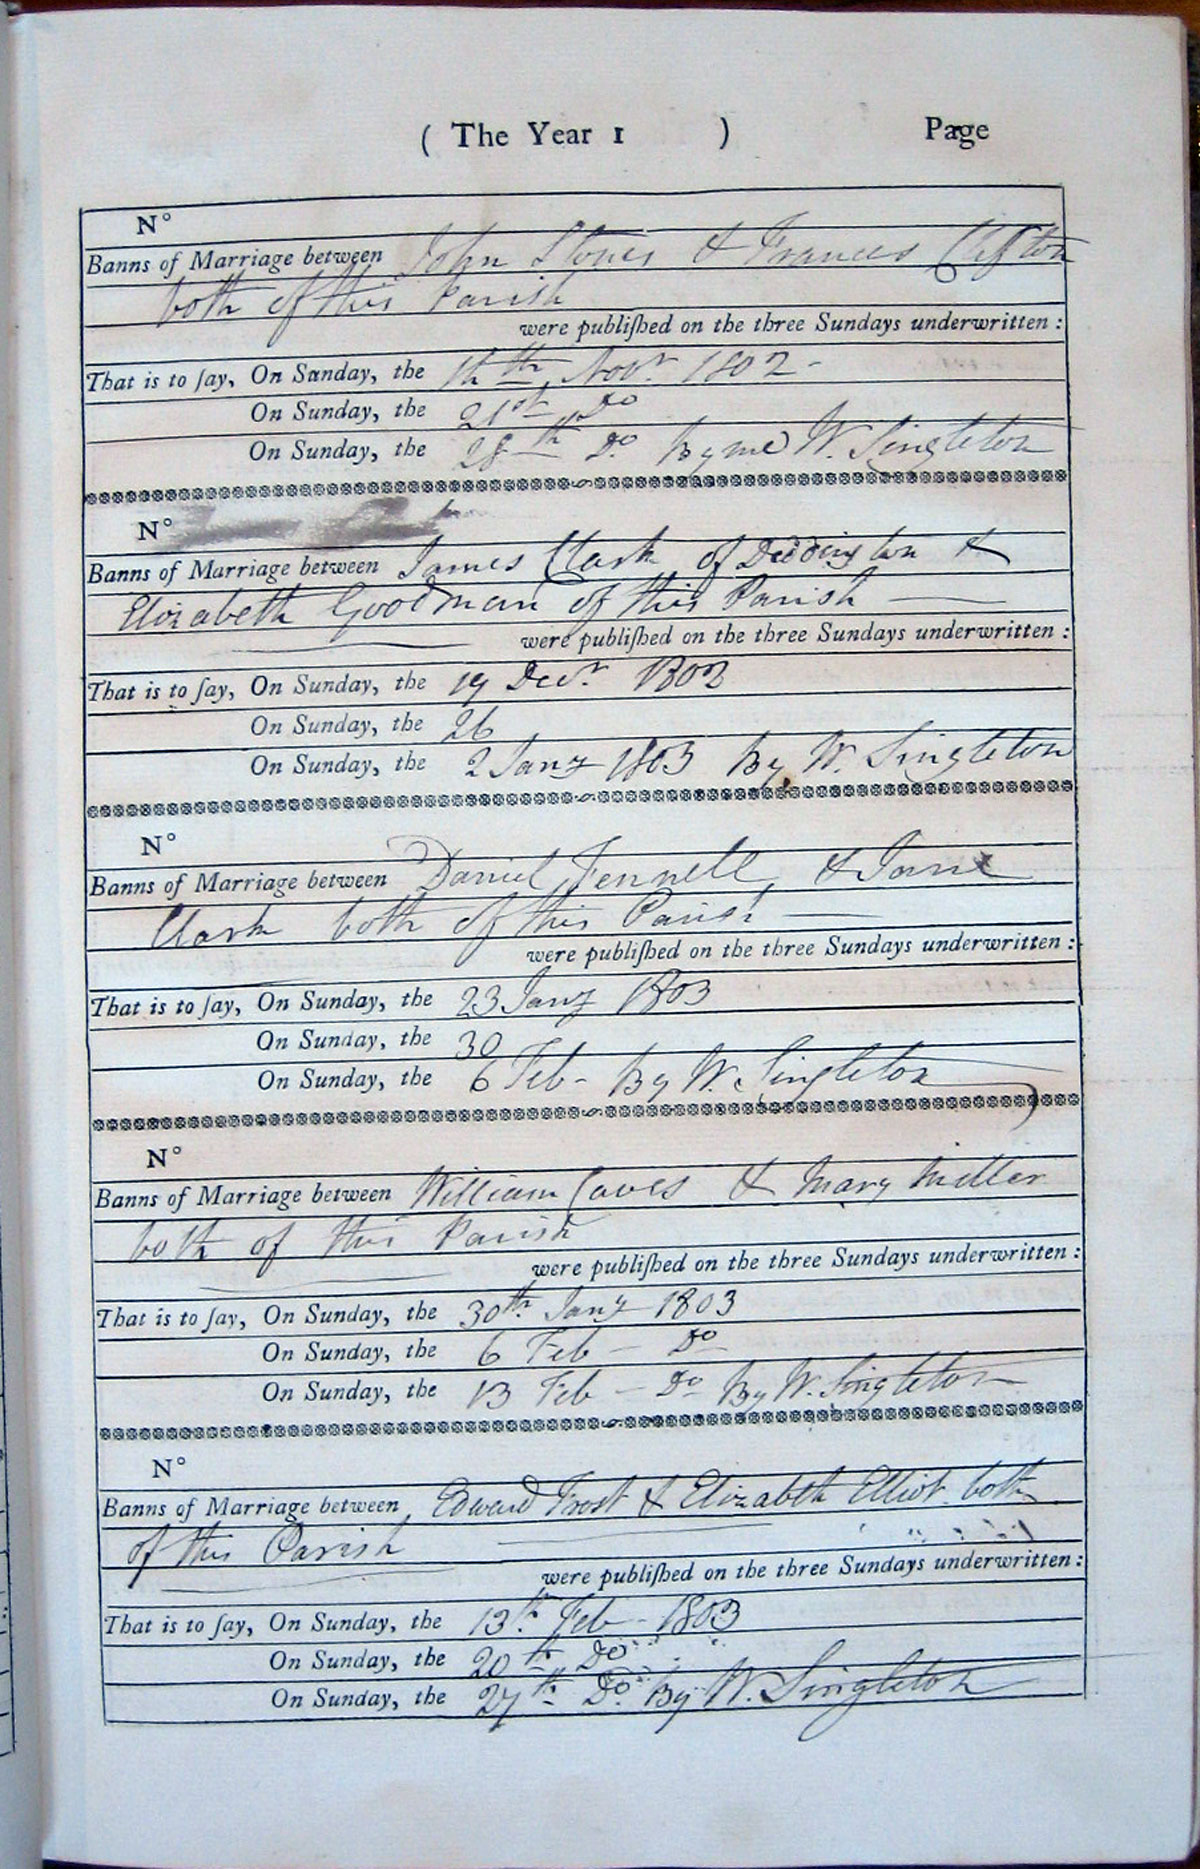 ( The Year 1 ) Page
N°
Banns of Marriage between John Stones & Frances Clifton
both of this Parish
were publiſhed on the three Sundays underwritten :
That is to ſay, On Sunday, the 14th Novr. 1802 -
On Sunday, the 21st Do
On Sunday, the 28th Do. By me W. Singleton
N°
Banns of Marriage between James Clark of Deddington &
Elizabeth Goodman of this Parish
were publiſhed on the three Sundays underwritten :
That is to ſay, On Sunday, the 19 Decr. 1802
On Sunday, the 26
On Sunday, the 2 Jany 1803 By W. Singleton
N°
Banns of Marriage between Daniel Fennell & Jane
Clark both of this Parish
were publiſhed on the three Sundays underwritten :
That is to ſay, On Sunday, the 23 Jany 1803
On Sunday, the 30
On Sunday, the 6 Feb - By W. Singleton
N°
Banns of Marriage between William Caves & Mary Miller
both of this Parish
were publiſhed on the three Sundays underwritten :
That is to ſay, On Sunday, the 30th Jany 1803
On Sunday, the 6 Feb - Do
On Sunday, the 13 Feb - Do By W. Singleton
N°
Banns of Marriage between Edward Frost & Elizabeth Elliot both
of this Parish
were publiſhed on the three Sundays underwritten :
That is to ſay, On Sunday, the 13th Feb - 1803
On Sunday, the 20th Do
On Sunday, the 27th Do. By W. Singleton